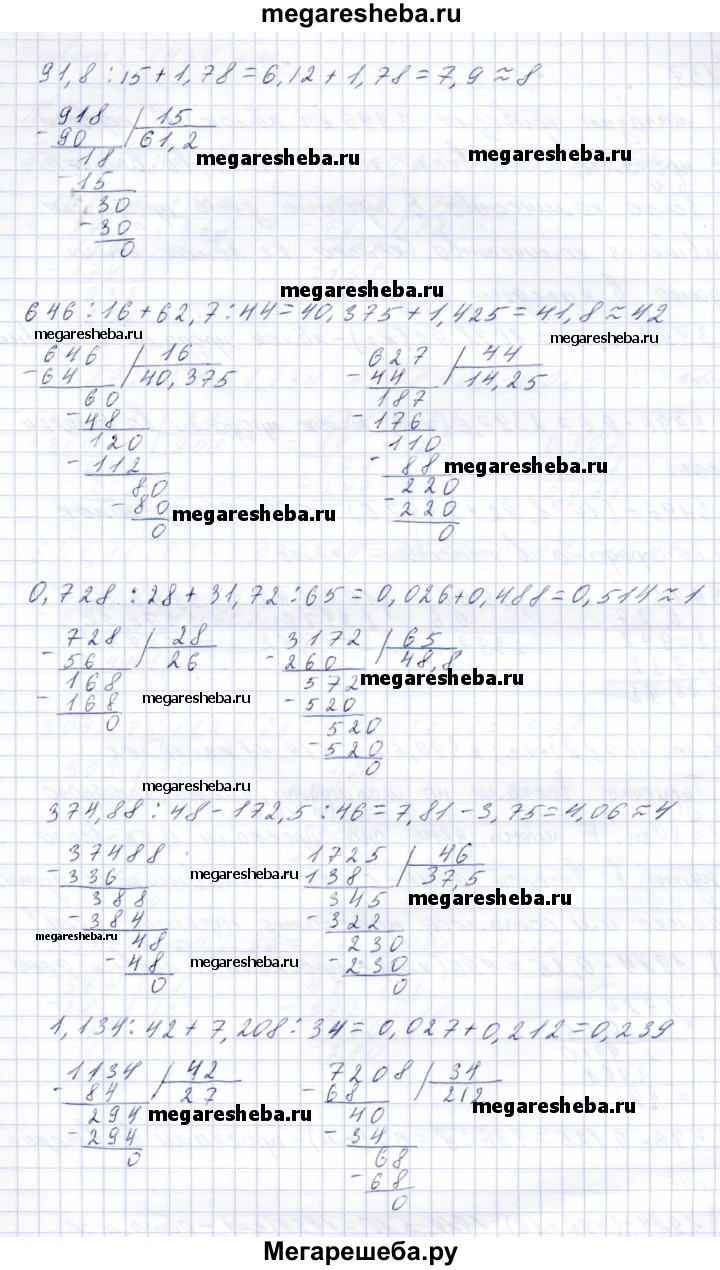 megaresheba.ru
91,8 : 15 + 1,78 = 6,12 + 1,78 = 7,9 ≈ 8
918 | 15
- 90 | 61,2
18
megaresheba.ru
megaresheba.ru
- 15
30
- 30
0
megaresheba.ru
646 : 16 + 62,7 : 44 = 40,375 + 1,425 = 41,8 ≈ 42
megaresheba.ru
megaresheba.ru
646 | 16
- 64 | 40,375
60
- 48
120
- 112
80
- 80
0
627 | 44
- 44 | 14,25
187
- 176
110
- 88
megaresheba.ru
220
- 220
0
megaresheba.ru
0,728 : 28 + 31,72 : 65 = 0,026 + 0,488 = 0,514 ≈ 1
728 | 28
- 56 | 26
168
- 168
0
megaresheba.ru
3172 | 65
- 260 | 48,8
572
megaresheba.ru
- 520
520
- 520
0
megaresheba.ru
374,88 : 48 - 172,5 : 46 = 7,81 - 3,75 = 4,06 ≈ 4
37488
- 336
388
- 384
48
- 48
0
megaresheba.ru
megaresheba.ru
megaresheba.ru
1725 | 46
138 | 37,5
345
megaresheba.ru
- 322
230
- 230
0
1,134 : 42 + 7,208 : 34 = 0,027 + 0,212 = 0,239
1134 | 42
- 84 | 27
294
megaresheba.ru
- 294
0
7208 | 34
- 68 | 212
megaresheba.ru
40
- 34
68
- 68
0
Мегарешеба.ру